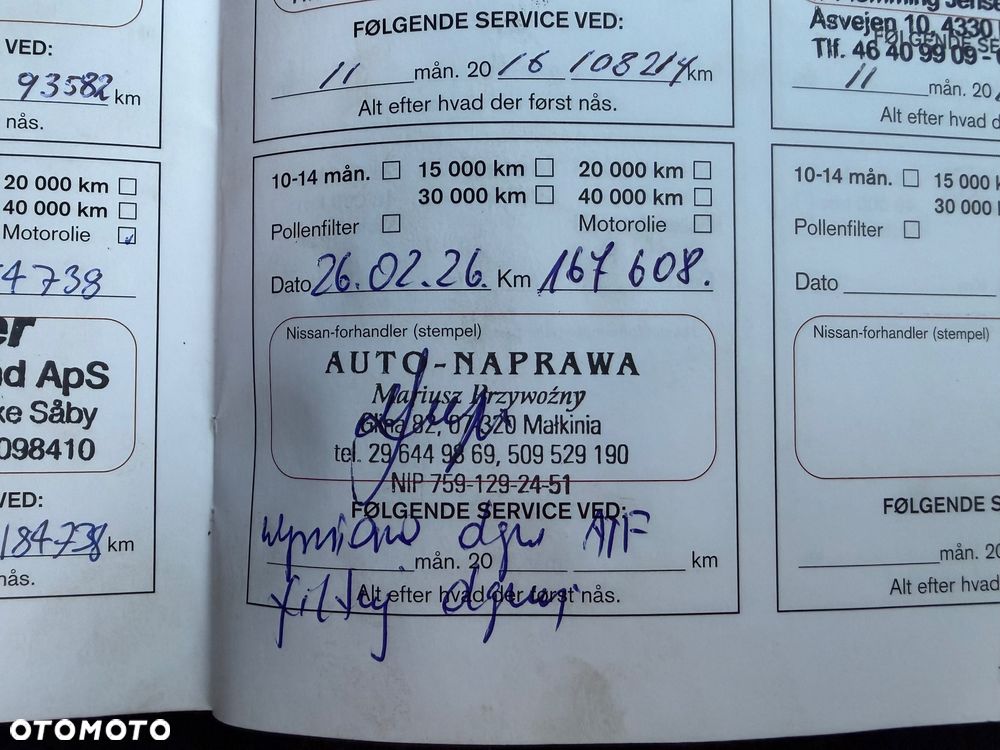 VED:
93582 km
nås.
20 000 km
40 000 km
Motorolie
4738
er
nd ApS
ke Såby
098410
VED:
184738 km
nås.
FØLGENDE SERVICE VED:
11 mån. 20 16 108214 km
Alt efter hvad der først nås.
10-14 mån. 15 000 km 20 000 km
30 000 km 40 000 km
Pollenfilter Motorolie
Dato 26.02.26. Km 167 608.
Nissan-forhandler (stempel)
AUTO-NAPRAWA
Mariusz Przywoźny
Glina 82, 07-320 Małkinia
tel. 29 644 98 69, 509 529 190
NIP 759-129-24-51
FØLGENDE SERVICE VED:
wymiana ATF
mån. 20 km
Alt efter hvad der først nås.
filtry
Flemming Jense
Åsvejen 10, 4330
FØLGENDE SE
Tlf. 46 40 99 09 -
11 mån. 20
Alt efter hvad d
10-14 mån. 15 000
30 000
Pollenfilter
Dato
Nissan-forhandler (stempel)
FØLGENDE S
mån. 20
Alt efter hvad
OTOMOTO